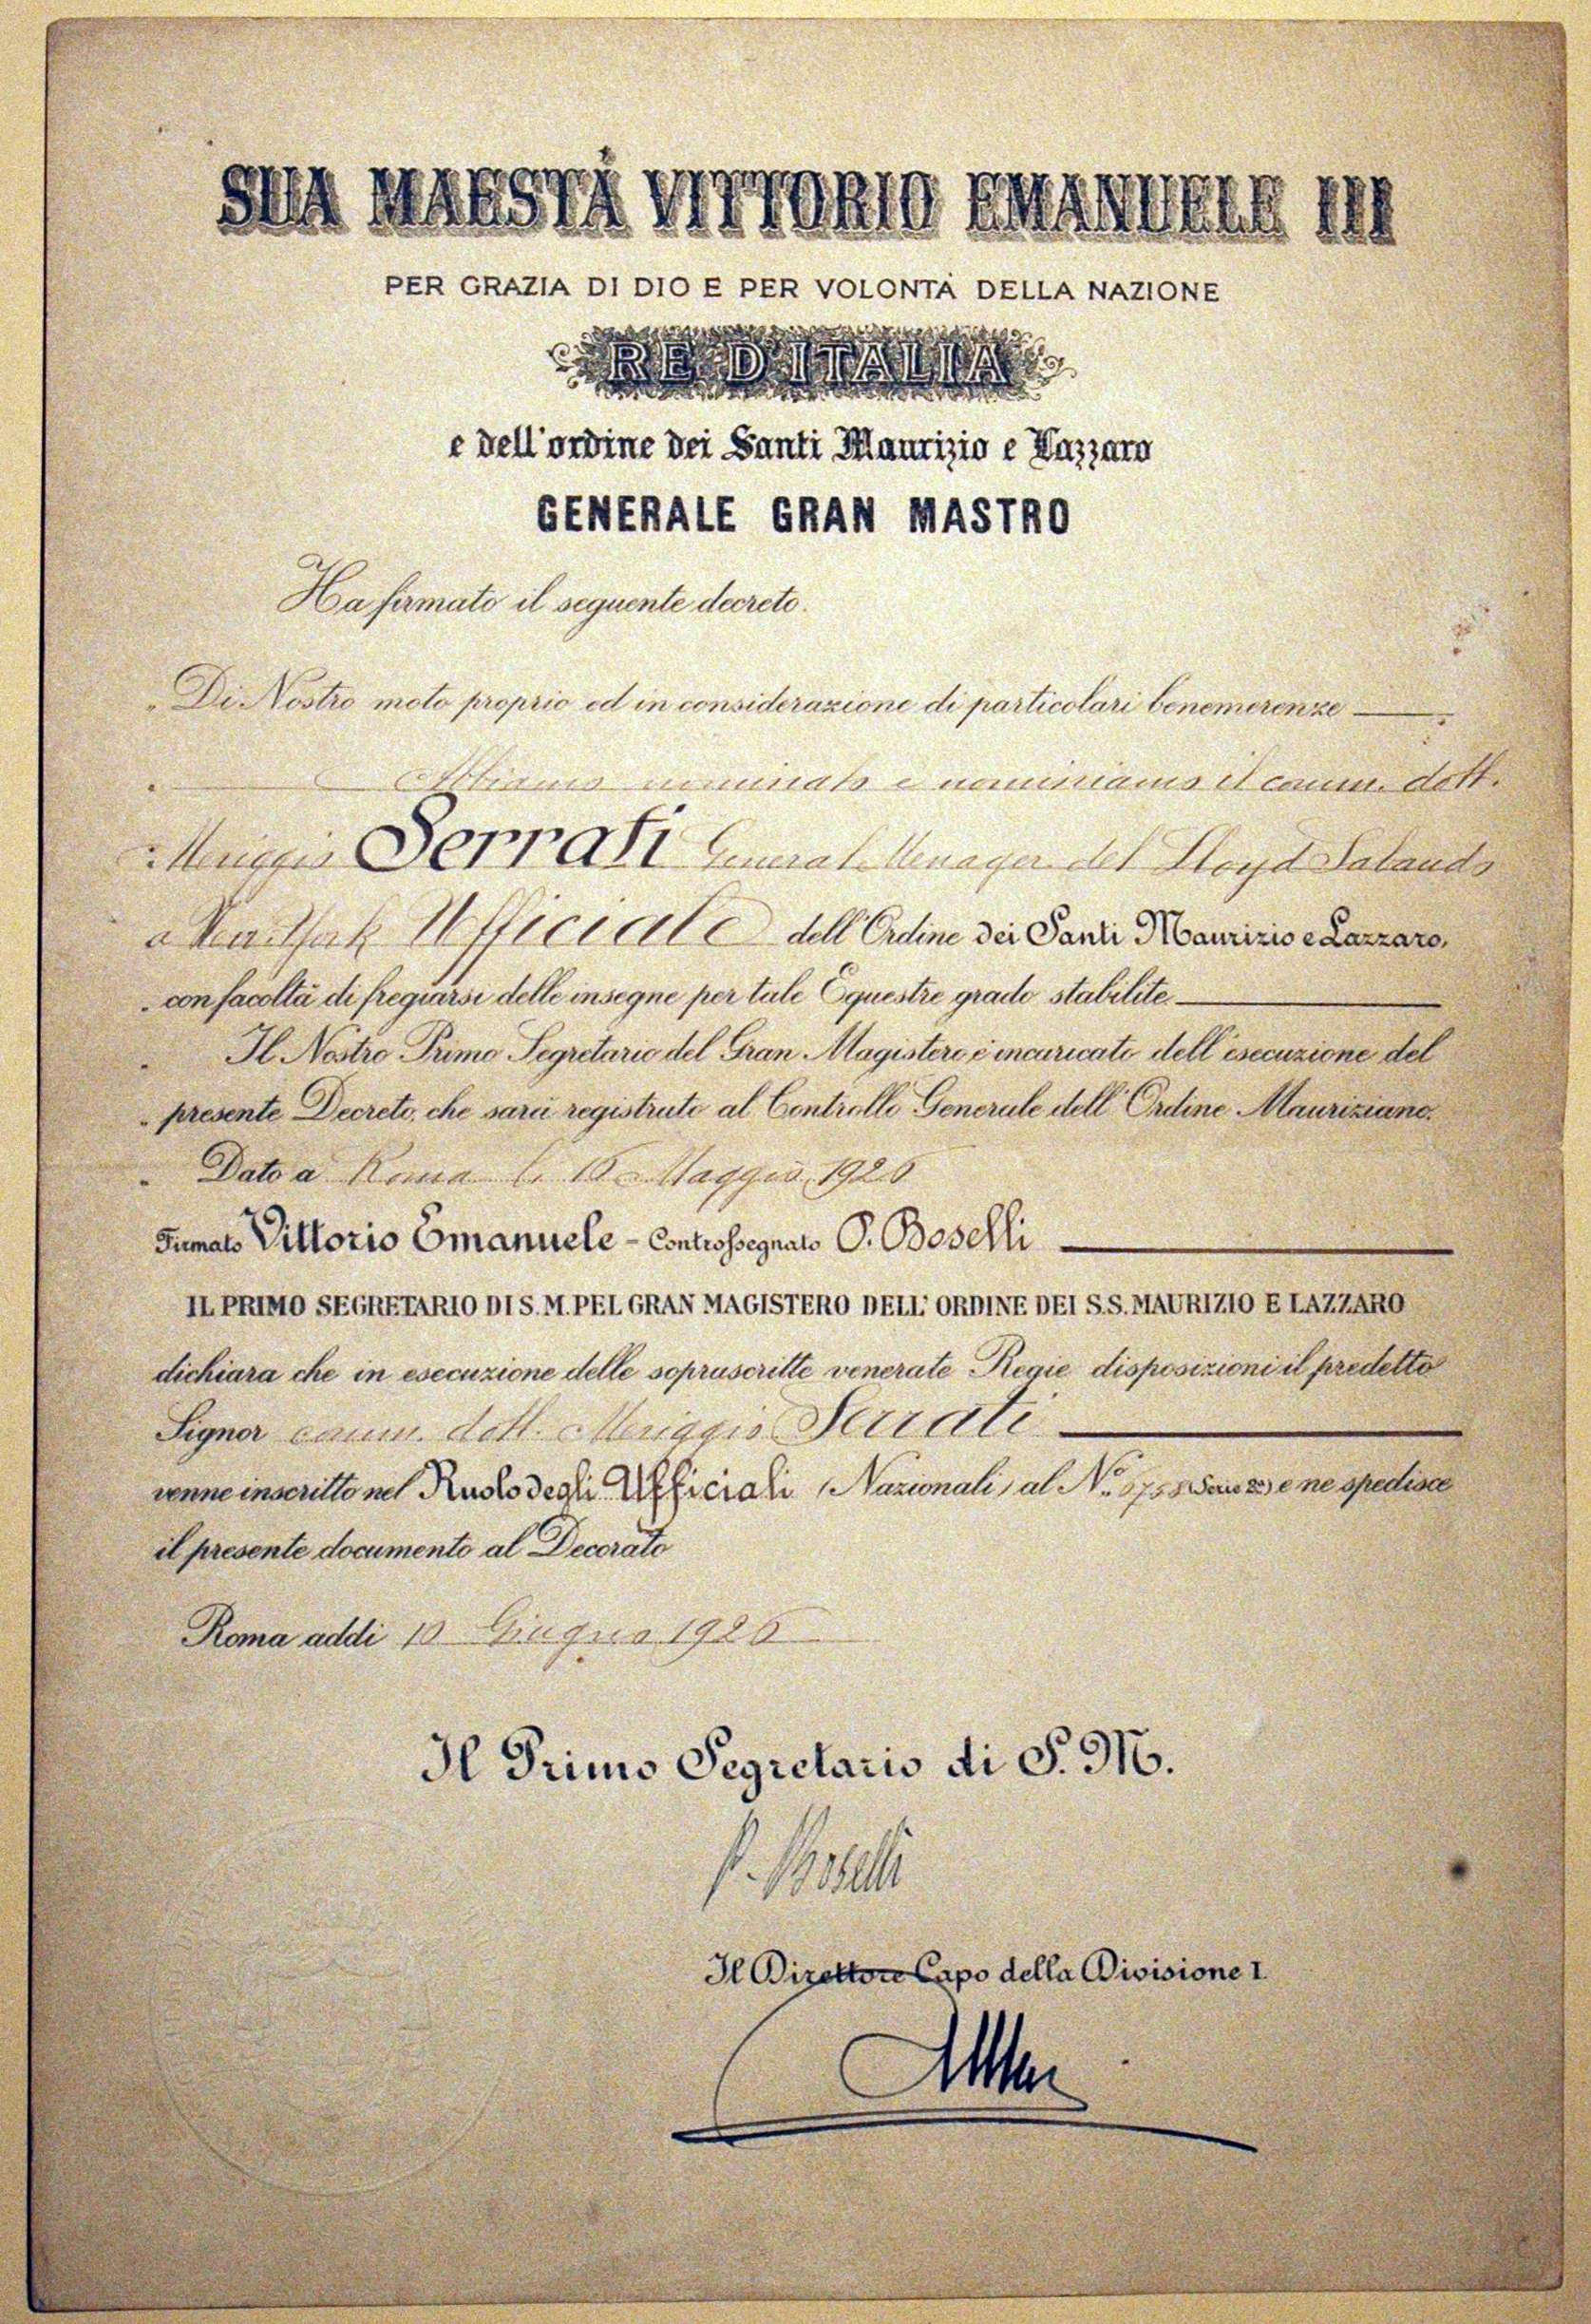 SUA MAESTÀ VITTORIO EMANUELE III
PER GRAZIA DI DIO E PER VOLONTÀ DELLA NAZIONE
RE D'ITALIA
e dell'ordine dei Santi Maurizio e Lazzaro
GENERALE GRAN MASTRO
Ha firmato il seguente decreto.
Di Nostro moto proprio ed in considerazione di particolari benemerenze
Abbiamo nominato e nominiamo il comm. dott.
Meriggio Serrati General Menager del Lloyd Sabaudo
a New York Ufficiale dell'Ordine dei Santi Maurizio e Lazzaro,
con facoltà di fregiarsi delle insegne per tale Equestre grado stabilite.
Il Nostro Primo Segretario del Gran Magistero è incaricato dell'esecuzione del
presente Decreto, che sarà registrato al Controllo Generale dell'Ordine Mauriziano.
Dato a Roma li Maggio 1926
Firmato Vittorio Emanuele - Controssegnato P. Boselli
IL PRIMO SEGRETARIO DI S.M. PEL GRAN MAGISTERO DELL'ORDINE DEI S.S. MAURIZIO E LAZZARO
dichiara che in esecuzione delle soprascritte venerate Regie disposizioni il predetto
Signor comm. dott. Meriggio Serrati
venne inscritto nel Ruolo degli Ufficiali (Nazionali) al N.° (Serie 2a) e ne spedisce
il presente documento al Decorato
Roma addi 10 Giugno 1926
Il Primo Segretario di S. M.
P. Boselli
Il Direttore Capo della Divisione I.